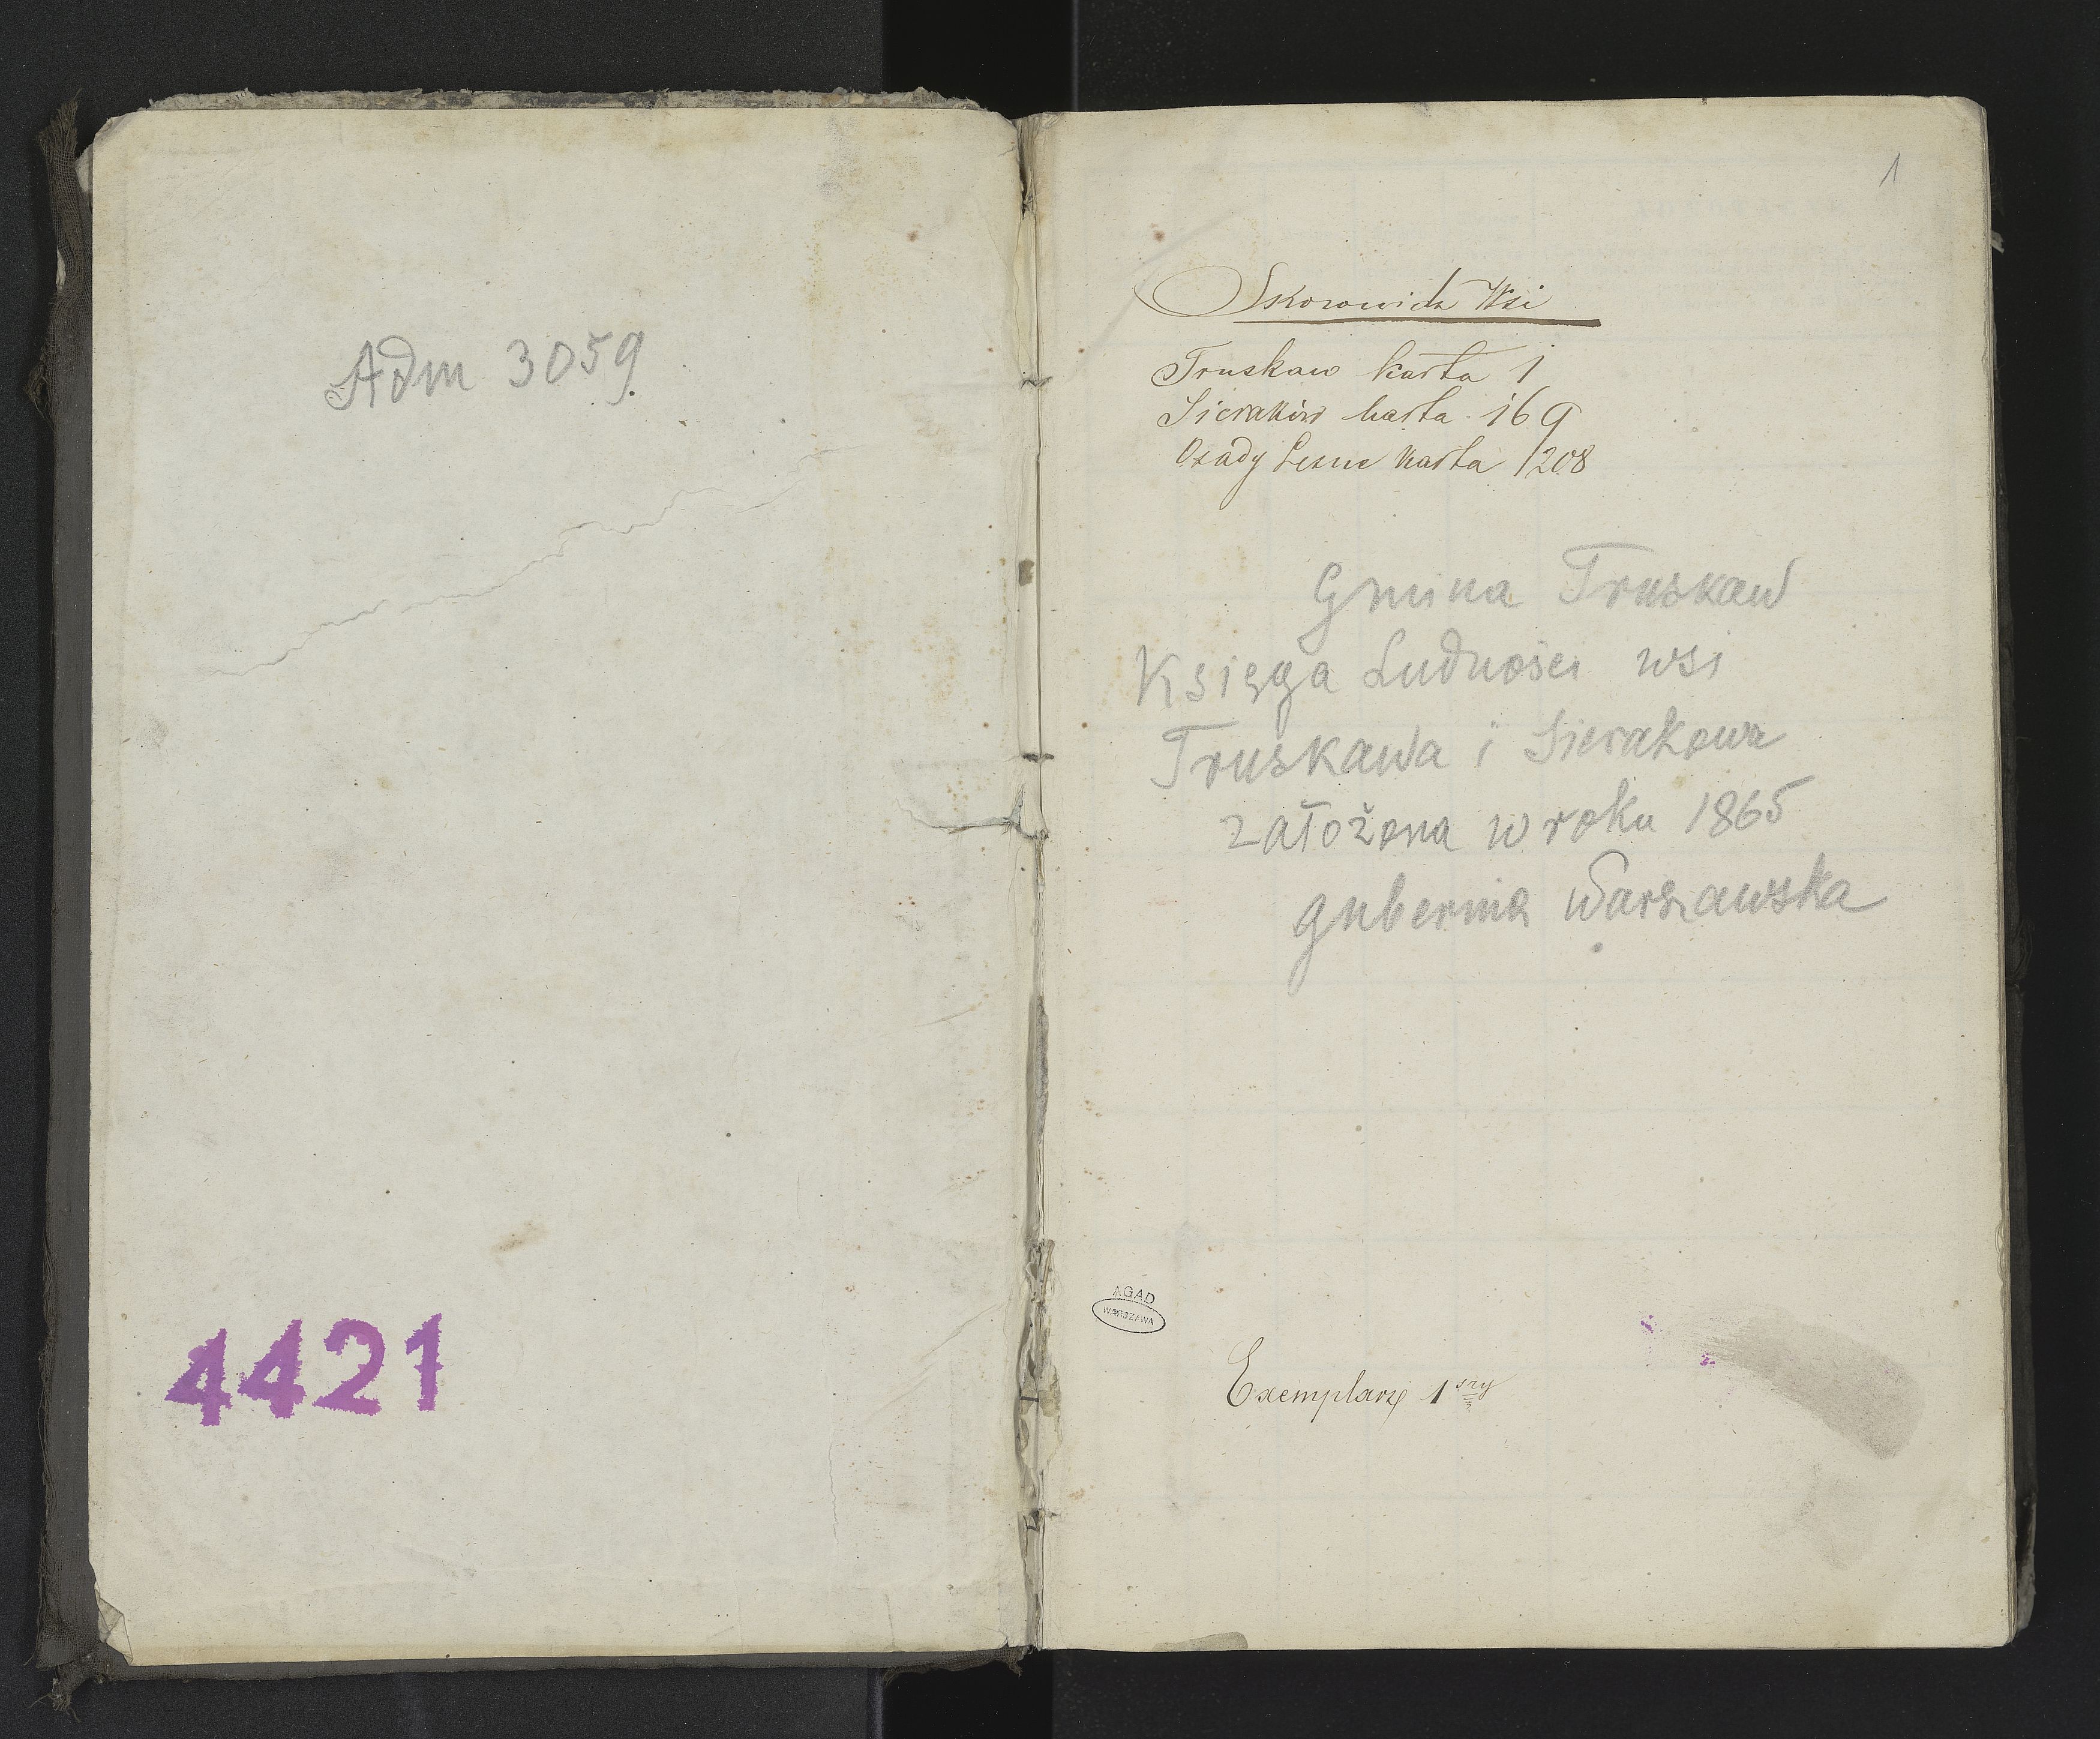 Adm 3059.
4421
1
Skorowidz Wsi
Truskaw karta 1
Sieraków karta 169
Osady Leśne karta 208
Gmina Truskaw
Księga Ludności wsi
Truskawa i Sierakowa
założona w roku 1865
gubernia Warszawska
AGAD
WARSZAWA
Exemplarz 1szy